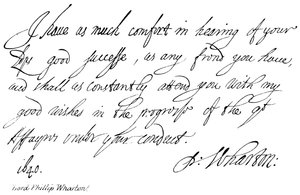 I haue as much comfort in hearing of your
Lps good successe, as any frend you haue,
and shall as constantly attend you with my
good wishes in the progress of the gt
Affayrs under your conduct.
1640.
P: Wharton:
Lord Phillip Wharton!